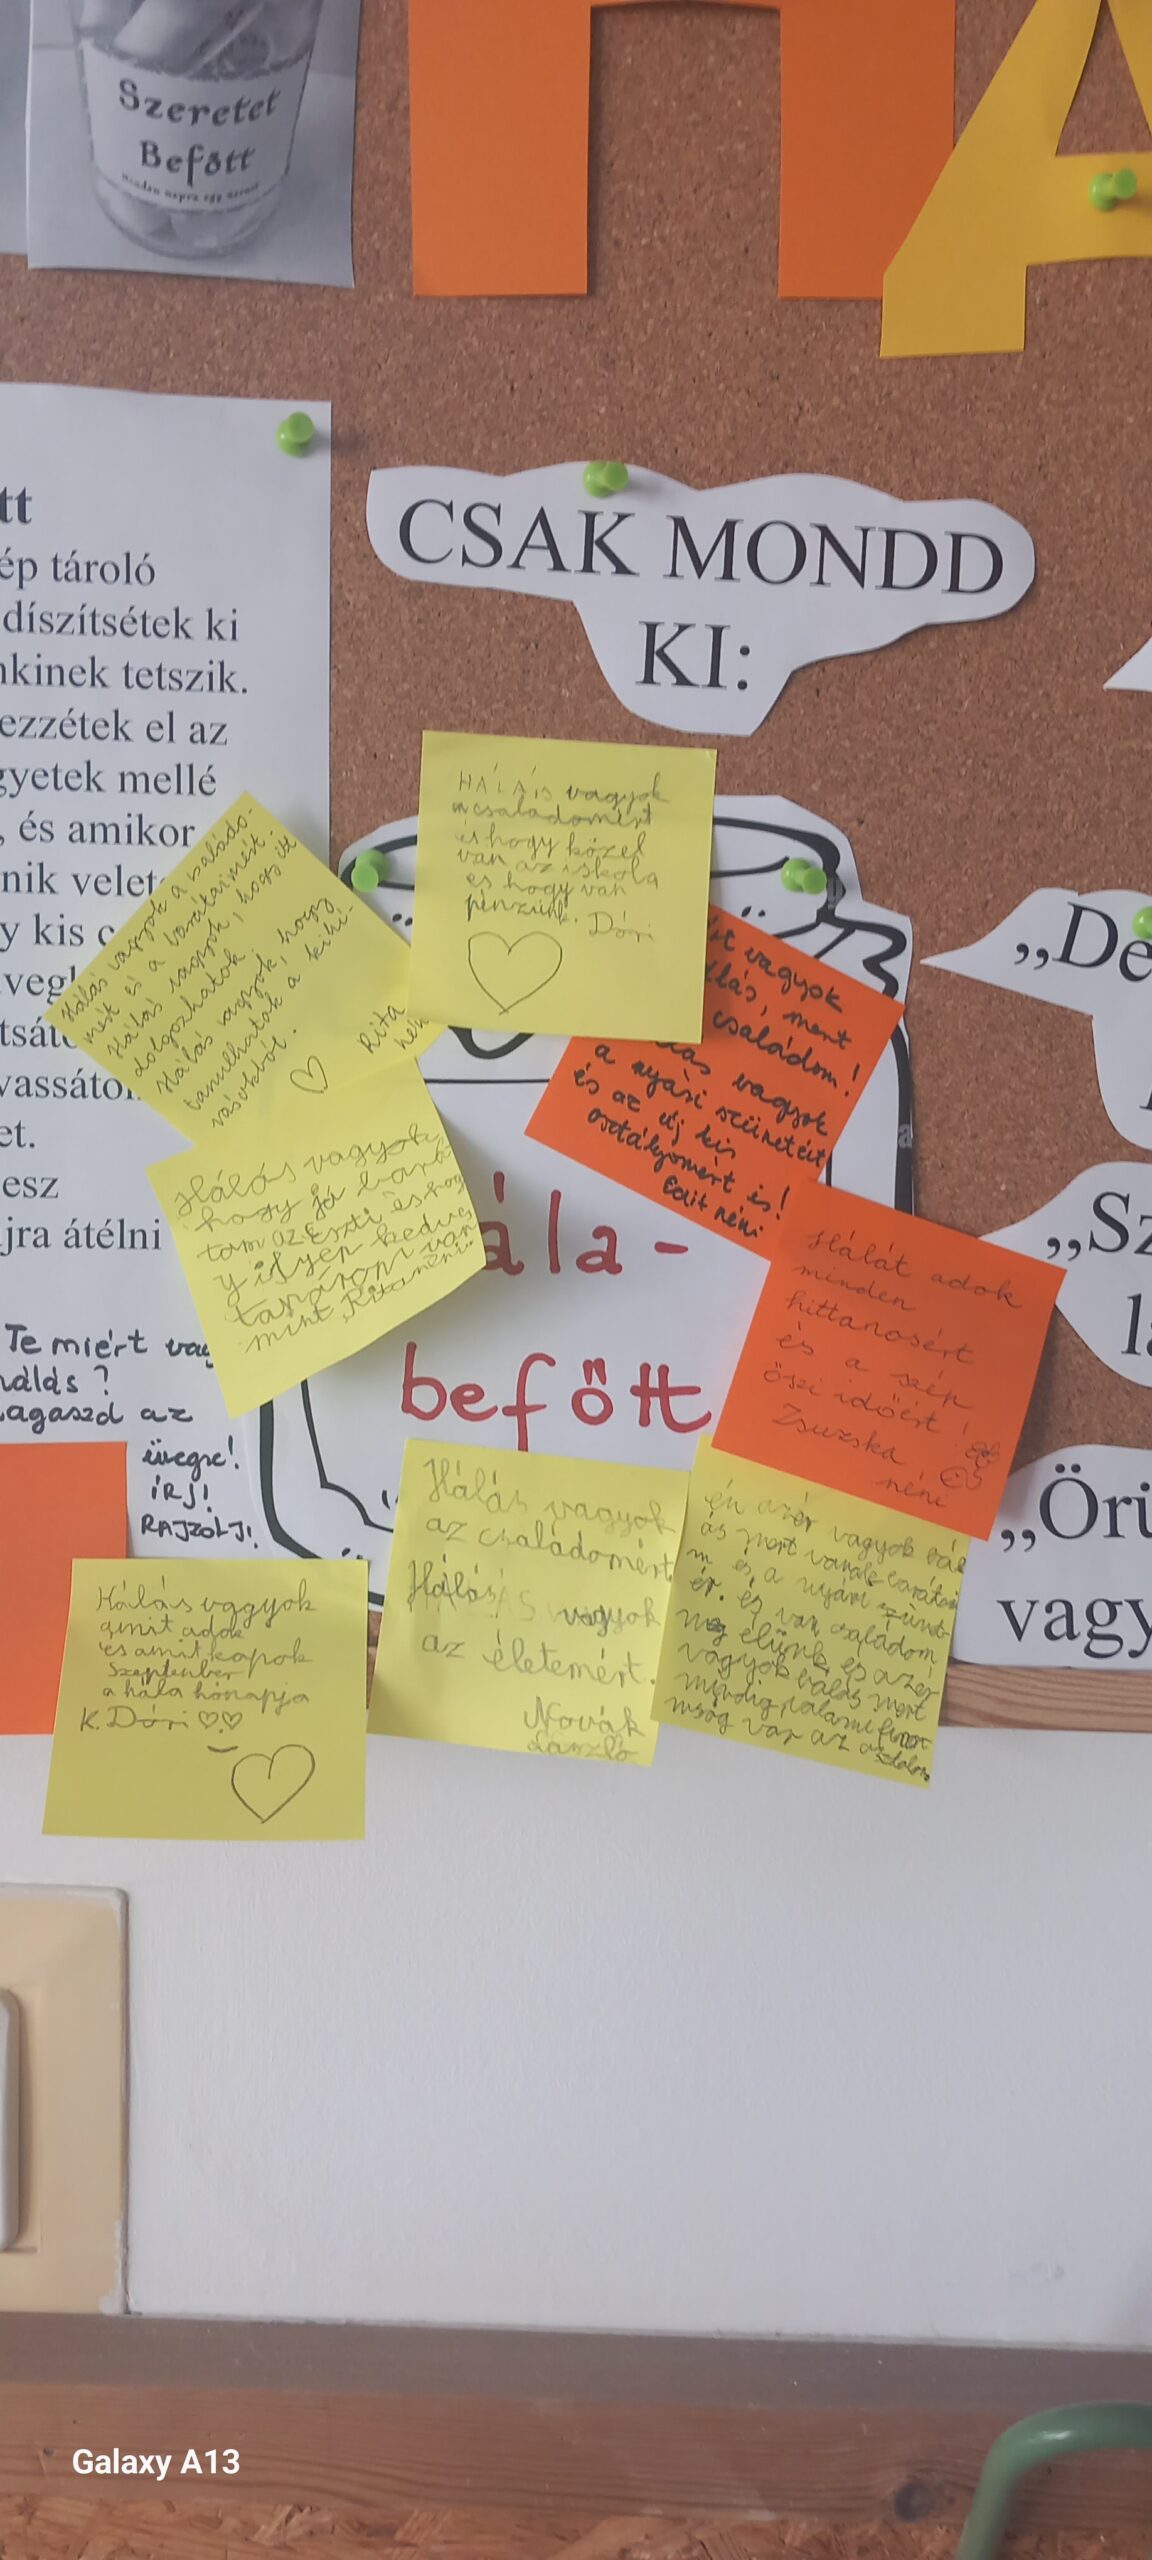 Szeretet
Befőtt
Minden napra egy szeret
tt
ép tároló
díszítsétek ki
nkinek tetszik.
ezzétek el az
gyetek mellé
, és amikor
nik velet
y kis
vegl
tsát
vassáto
et.
esz
jra átélni
Te miért vagy
hálás?
ragaszd az
üvegre!
ÍRJ!
RAJZOLJ!
CSAK MONDD
KI:
HÁLÁS vagyok
a családomért
és hogy közel
van az iskola
és hogy van
pénzünk. Dóri
Hálás vagyok a családo-
mért és a barátaimért
Hálás vagyok, hogy itt
dolgozhatok
Hálás vagyok, hogy
tanulhatok a kihí-
vásokból.
Rita
néni
Hálás vagyok,
hogy jó bará
tom az Eszti és hog
y ilyen kedves
tanárom van
mint Rita néni.
vagyok
lás, mert
családom!
vagyok
a nyári szünetért
és az új kis
osztályomért is!
Edit néni
Hálát adok
minden
hittanosért
és a szép
őszi időért!
Zsuzska
néni
ála-
befőtt
Hálás vagyok
az családomért.
Hálás vagyok
az életemért.
Novák
László
én azér vagyok hál
ás mert vanak barátai
m és a nyári szünet
ér. és van családom
meg élünk és azér
vagyok hálás mert
mindig valami finom
ság van az asztalon
Hálás vagyok
amit adok
és amit kapok
Szeptember
a hála hónapja
K. Dóri
„De
„Sz
la
„Örü
vagy
Galaxy A13